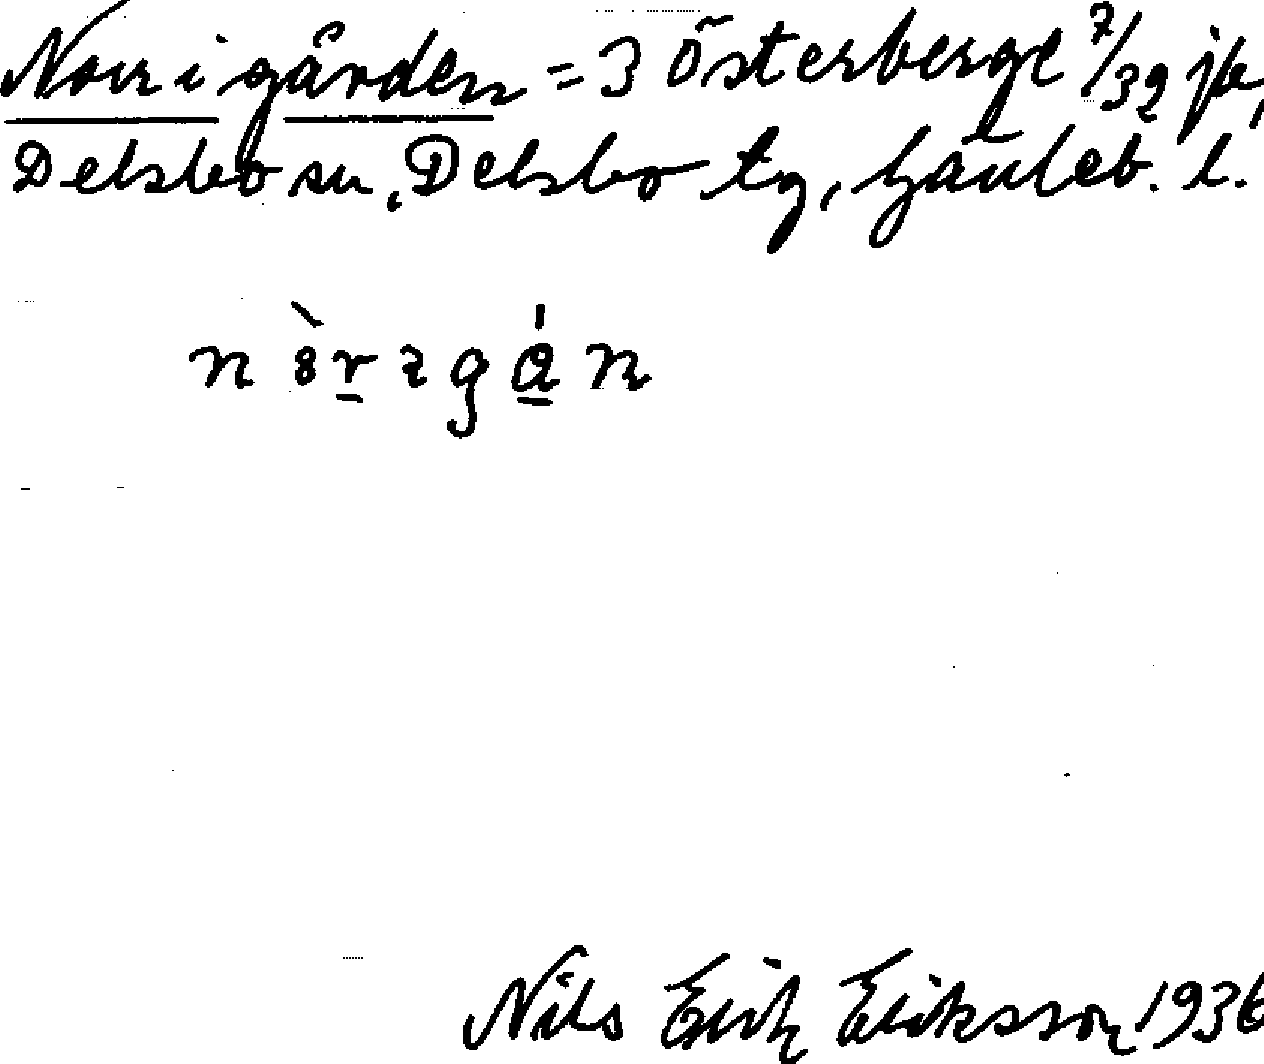 Norrigården = 3 Österberge 7/32 jb,
Delsbo sn, Delsbo tg, Gävleb. l.
Nils Erik Eriksson 1936